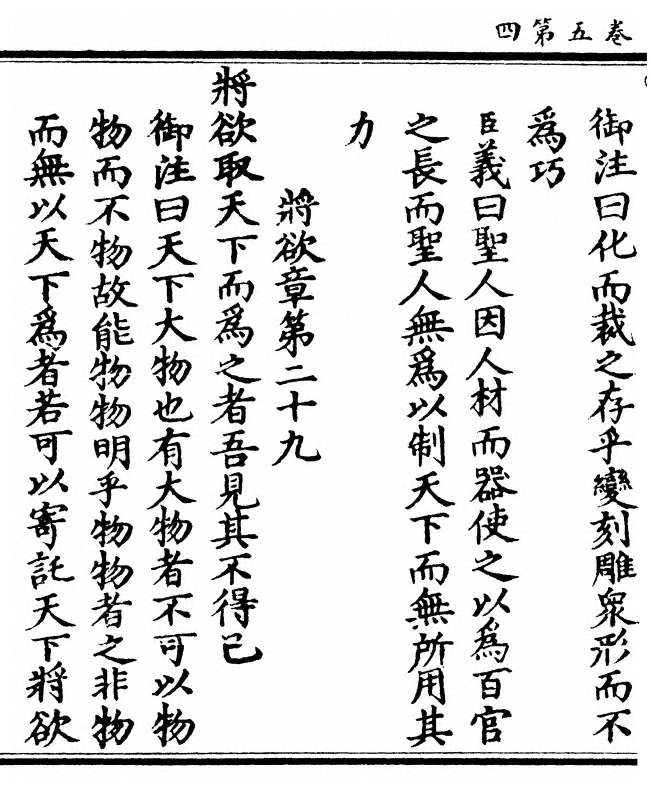 卷五第四
御注曰化而裁之存乎變刻雕衆形而不
爲巧
臣義曰聖人因人材而器使之以爲百官
之長而聖人無爲以制天下而無所用其
力
將欲章第二十九
將欲取天下而爲之者吾見其不得已
御注曰天下大物也有大物者不可以物
物而不物故能物物明乎物物者之非物
而無以天下爲者若可以寄託天下將欲